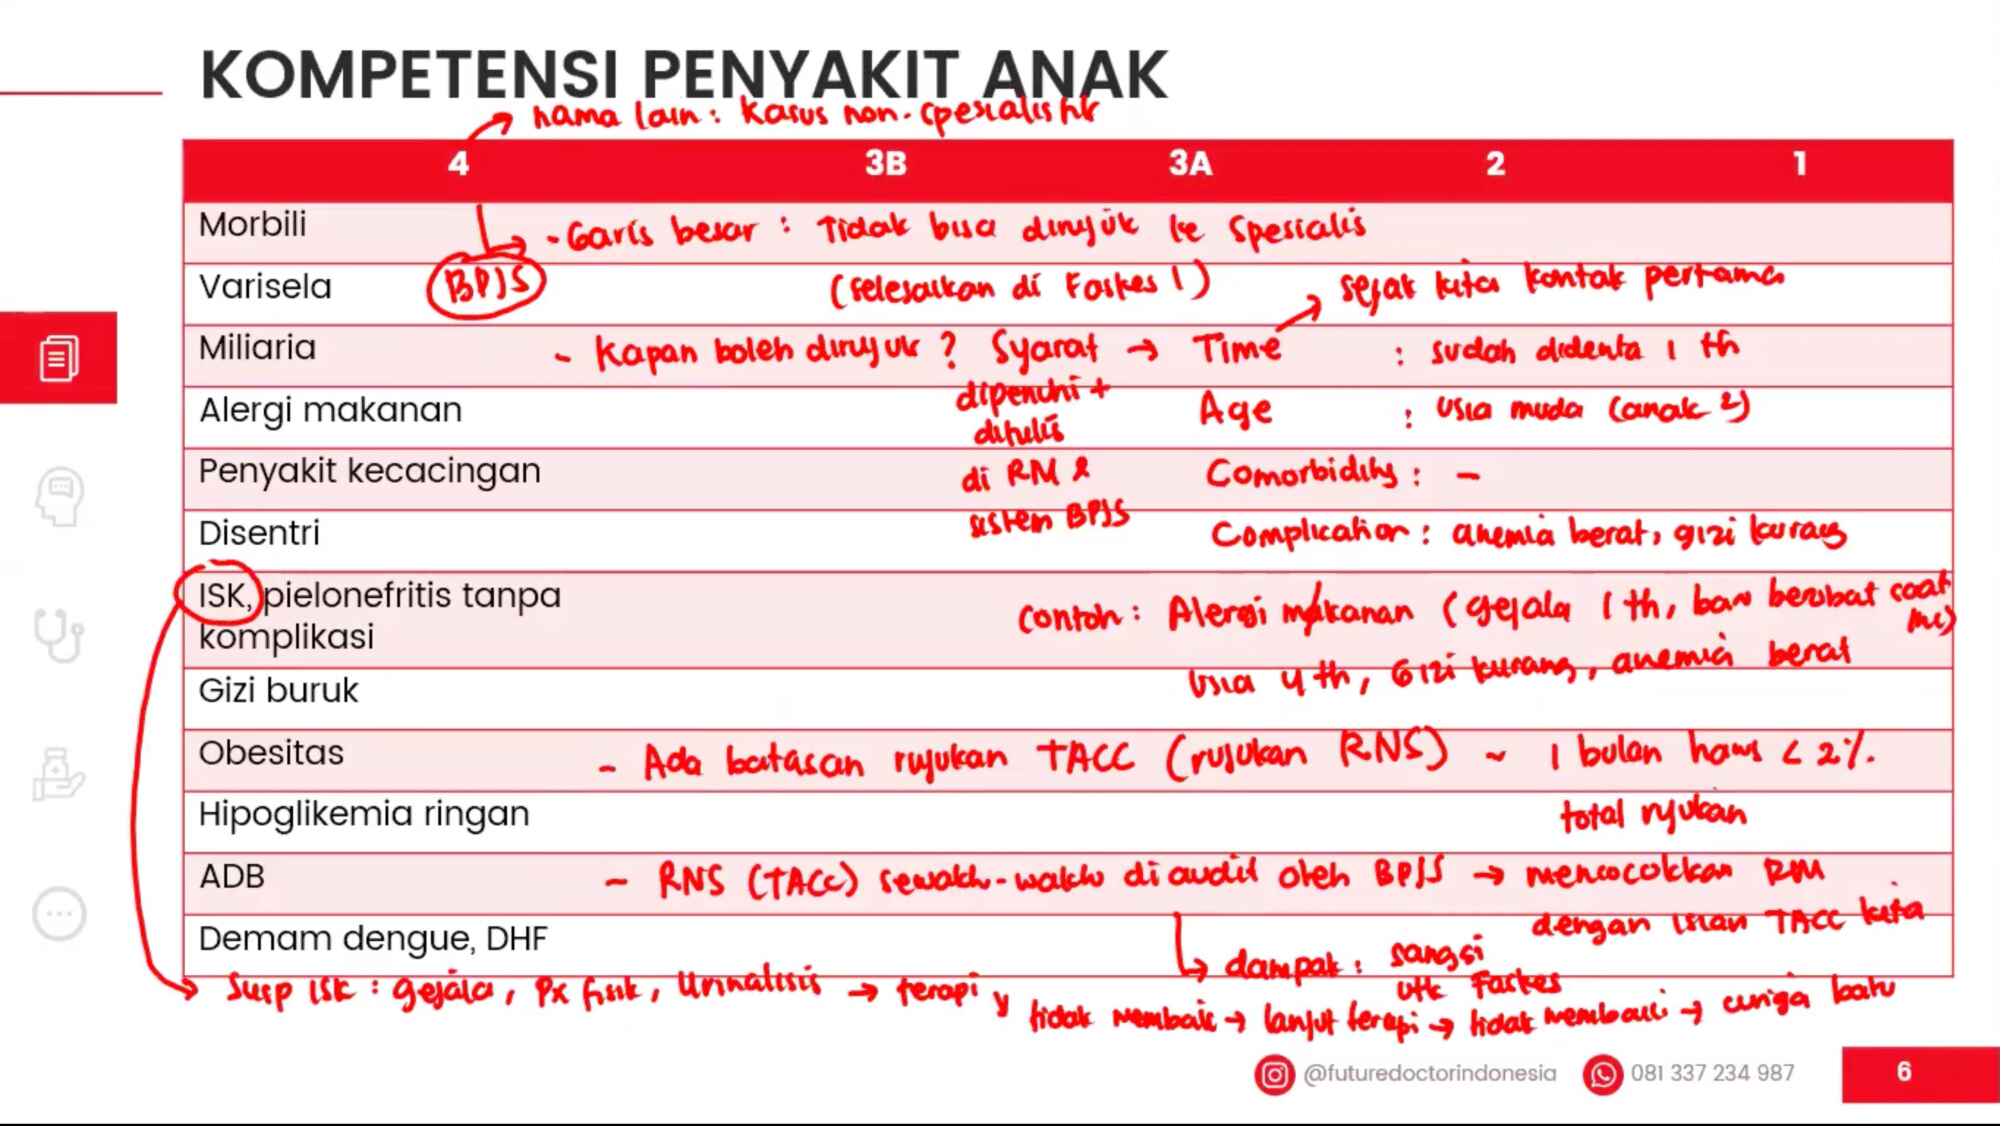 KOMPETENSI PENYAKIT ANAK
nama lain : Kasus non-spesialistik
4 3B 3A 2 1
Morbili
- Garis besar : Tidak bisa dirujuk ke Spesialis
Varisela
BPJS
(selesaikan di Faskes 1)
sejak kita kontak pertama
Miliaria
- Kapan boleh dirujuk ? Syarat → Time : sudah diderita 1 th
dipenuhi +
ditulis
di RM &
sistem BPJS
Alergi makanan
Age : usia muda (anak 2)
Penyakit kecacingan
Comorbidity : -
Disentri
Complication : anemia berat, gizi kurang
ISK, pielonefritis tanpa
komplikasi
Contoh : Alergi makanan (gejala 1 th, baru berobat saat
ini)
Usia 4 th, Gizi kurang, anemia berat
Gizi buruk
Obesitas
- Ada batasan rujukan TACC (rujukan RNS) ~ 1 bulan harus < 2%.
total rujukan
Hipoglikemia ringan
ADB
- RNS (TACC) sewaktu-waktu di audit oleh BPJS → mencocokkan RM
dengan isian TACC kita
Demam dengue, DHF
dampak : sangsi
utk Faskes
Susp ISK : gejala, Px fisik, Urinalisis → terapi
tidak membaik → lanjut terapi → tidak membaik → curiga batu
@futuredoctorindonesia 081 337 234 987 6